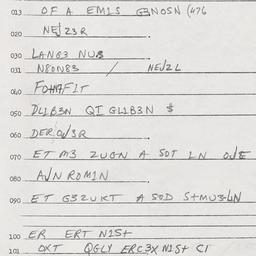 013 OF A EM1S G3NOSN (476
020 NEJZ3R
030 LANG3 NUB
031 N80N83 / NEJZL
040 FOHAFIT
050 DL1B3N QI GL1B3N $
060 DER0J3R
070 ET M3 ZUGN A SOT LN OJE
080 AJN ROM1N
090 ET G3ZUKT A SOD S+MU3LN
100 ER ERT N1S+
101 OXT QGLY ERC3X N1S+ CI